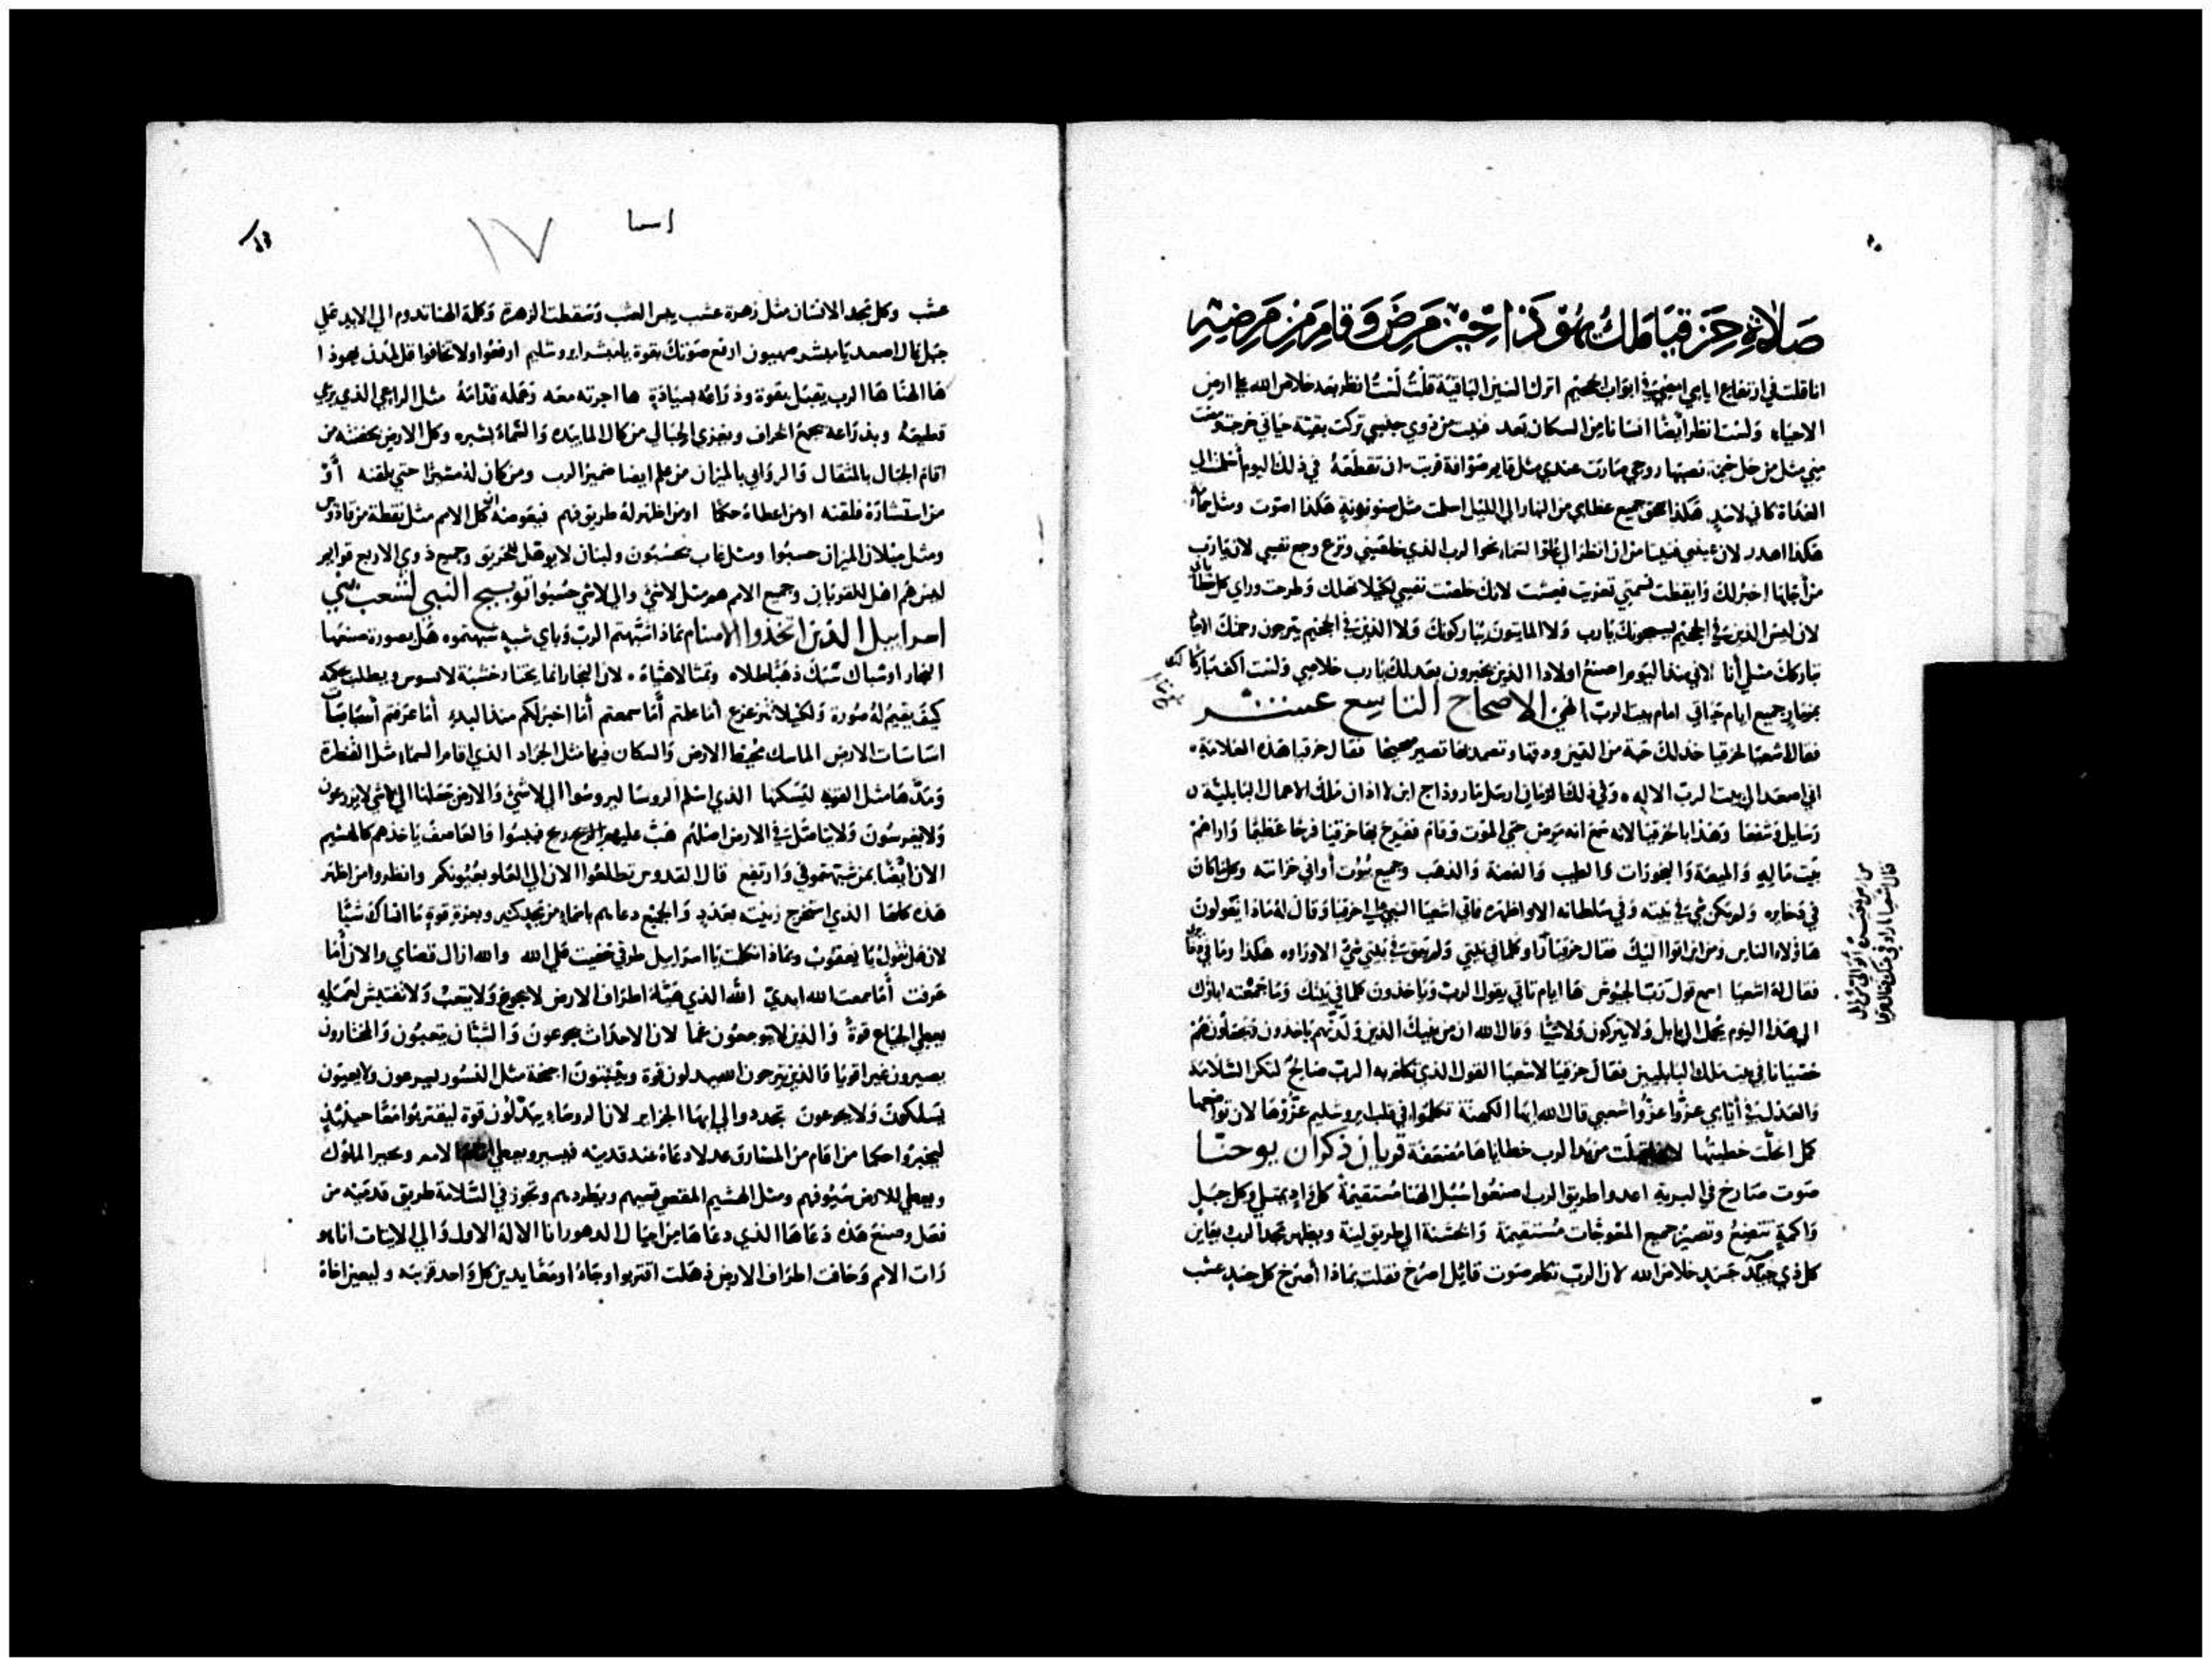 صلاة حزقيا ملك يهوذا حين مرض وقام من مرضه
انا قلت في ارتفاع ايامي امضي في ابواب الجحيم اترك السنين الباقية قلت لست انظر بعد خلاص الله علي ارض
الاحياء ولست انظر ايضا انسانا من السكان بعد من ذوي جنسي تركت بقية حياتي خرجت ومضت
مني مثل من حل خيمة نصبها روحي صارت عندي مثل في ذلك اليوم اسلمت الي
الغداة كاني لاسد هكذا سحق جميع عظامي من النهار الي الليل اسلمت مثل سنونونة هكذا اصوت ومثل حمامة
هكذا اهدر لان عيني فنيتا من ان انظر الي علو السماء نحو الرب الذي خلصني ونزع وجع نفسي لان يا رب
من اجلها اخبر لك وايقظت نسمتي تعزيت فعشت لانك خلصت نفسي لكيلا تهلك وطرحت وراي كل خطاياي
لان ليس الذين في الجحيم يسبحونك يا رب ولا المايتون يباركونك ولا الذين في الجحيم يترجون رحمتك الاحيا
تباركك مثلي أنا لاني منذ اليوم اصنع اولادا الذين يخبرون بعدلك يا رب خلاصي ولست اكف مباركا لك
بمزمار جميع ايام حياتي امام بيت الرب الهي الاصحاح التاسع عشر
فقال اشعيا لحزقيا خذ لك حبة من التين ودقها وتضمد بها تصير صحيحا فقال حزقيا هذه العلامة
اني اصعد الي بيت الرب الاله وفي ذلك الزمان ارسل مارودا ج ابن لاادان ملك البابلية
رسايل وهدايا حزقيا لانه سمع انه مرض حتي الموت وقام ففرح بها حزقيا فرحا عظيما واراهم
بيت ماله والميعة والبخورات والطيب والفضة والذهب وجميع بيوت أواني خزانته وكل ما كان
في ذخايره ولم يكن شي في بيته وفي سلطانه الا واظهره فاتي اشعيا النبي الي حزقيا وقال له ماذا يقولون
هاؤلاء الناس ومن اين اتوا اليك فقال حزقيا راوا كلما في بيتي ولم يبق في بيتي شي الا وراوه هكذا وما في
فقال له اشعيا اسمع قول رب الجيوش ها ايام تاتي يقول الرب وياخذون كلما في بيتك وما جمعته اباؤك
الي هذا اليوم يحمل الي بابل ولا يتركون ولا شيا وقال الله ان من بنيك الذين ولدتهم ياخذون ويجعلونهم
خصيانا في بيت ملك البابليين فقال حزقيا لاشعيا القول الذي تكلم به الرب صالح لتكن السلامة
والعدل في أيامي عزوا عزوا شعبي قال الله ايها الكهنة تكلموا في قلب يروشليم عزوها لان تواضعها
كمل انحلت خطيتها لانها قبلت من يد الرب خطاياها مضعفة قربان ذكران يوحنا
صوت صارخ في البرية اعدوا طريق الرب اصنعوا سبل الهنا مستقيمة كل واد يمتلي وكل جبل
واكمة تتضع وتصير جميع المعوجات مستقيمة والخشنة الي طريق لينة ويظهر مجد الرب يعاين
كل ذي جسد خلاص الله لان الرب تكلم صوت قايل اصرخ فقلت بماذا أصرخ كل جسد عشب
اسعيا
١٧
عشب وكل مجد الانسان مثل زهرة عشب يبس العشب وسقطت الزهرة وكلمة الهنا تدوم الي الابد علي
جبل عال اصعد يا مبشر صهيون ارفع صوتك بقوة يا مبشر ايروشليم ارفعوا ولا تخافوا قل لمدن يهوذا
ها الهنا ها الرب يقبل بقوة وذراعه بسيادة ها اجرته معه وعمله قدامه مثل الراعي الذي يرعي
قطيعه وبذراعه يجمع الخراف ويعزي الحبالي من كال الما بيده والسماء بشبره وكل الارض بحفنته من
اقام الجبال بالمثقال والروابي بالميزان من علم ايضا ضمير الرب ومن كان له مشيرا حتي يلقنه أو
من استشاره فلقنه او من اعطاه حكما او من اظهر له طريق فهم كل الامم مثل نقطة من قادوس
ومثل ميلان الميزان حسبوا ومثل لعاب يحسبون ولبنان لا يوهل للحريق وجميع ذوي الاربع قوايم
ليس هم اهل للقربان وجميع الامم هم مثل لاشي والي لاشي حسبوا توبيخ النبي لشعب بني
اسراييل الذين اتخذوا الاصنام بماذا اشبهتم الرب وباي شبه شبهتموه هل بصورة صنعها
النجار او سباك سبك ذهبا طلاه وتمثالا هياه لان النجار انما يختار خشبة لا تسوس ويطلب بحكمة
كيف يقيم له صورة ولكيلا تتزعزع أما علمتم أما سمعتم أما اخبر لكم منذ البدء أما عرفتم أساسات
اساسات الارض الماسك محيط الارض والسكان فيها مثل الجراد الذي اقام السماء مثل القنطرة
ومدها مثل القبة ليسكنها الذي اسلم الروسا ليروسوا الي لاشي والارض جعلها الي لاشي لا يزرعون
ولا يغرسون ولا يتاصل في الارض اصلهم هبت عليهم الريح فيبسوا والعاصف ياخذهم كالهشيم
الان ايضا بمن شبهتموني وارتفع قال القدوس تطلعوا الان الي العلو بعيونكم وانظروا من اظهر
هذه كلها الذي استخرج زينته بعدد والجميع دعاهم باسماء من مجد كثير وبعزة قوة ما انساك شيا
لان هل تقول يا يعقوب وبماذا تكلمت يا اسراييل طرقي خفيت علي الله والله ازال قضاي والان أما
عرفت أما سمعت الله ابدي الله الذي هيا اطراف الارض لا يجوع ولا يتعب ولا تفتيش لعقله
يعطي الجياع قوة والذين لا يتوجعون غما لان الاحداث يجوعون والشبان يتعبون والمختارون
يصيرون غير اقويا والذين يترجون الله يبدلون قوة وينبتون اجنحة مثل النسور يسرعون ولا يعيون
يسلكون ولا يجوعون تجددوا الي ايها الجزاير لان الروسا يبدلون قوة ليقتربوا معا حينيذ
ليخبروا حكما من اقام من المشارق عدلا دعاه عند قدميه فيسير ويعطي الامم ويحير الملوك
ويعطي للارض سيوفهم ومثل الهشيم المقصي قسيهم ويطردهم وتجوز في السلامة طريق قدميه من
فعل وصنع هذه دعاها الذي دعاها من اجيال الدهور انا الاله الاول والي الاتيات أنا هو
رات الامم وخافت اطراف الارض ذهلت اقتربوا وجاؤا معا يدين كل واحد قريبه وليعين اخاه